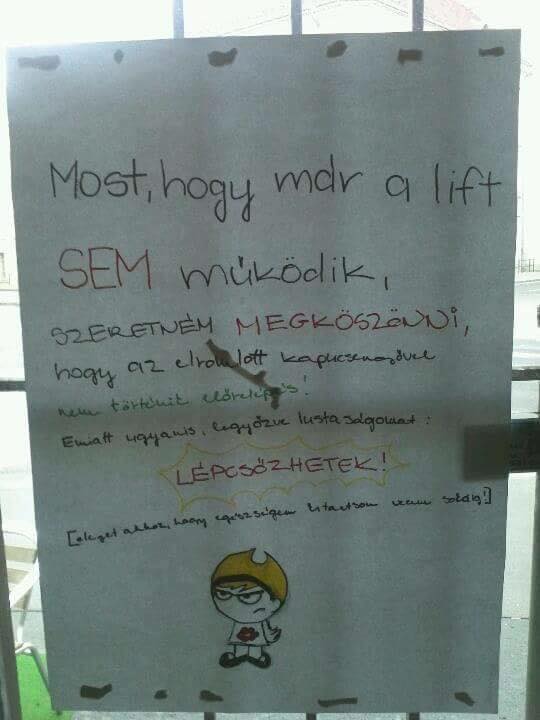 Most, hogy már a lift
SEM működik,
SZERETNÉM MEGKÖSZÖNNI,
hogy az elromlott kapucsengővel
nem történik előrelépés!
Emiatt ugyanis, legyőzve lustaságomat:
LÉPCSŐZHETEK!
[eleget ahhoz, hogy egészségem kitartson velem sokáig!]